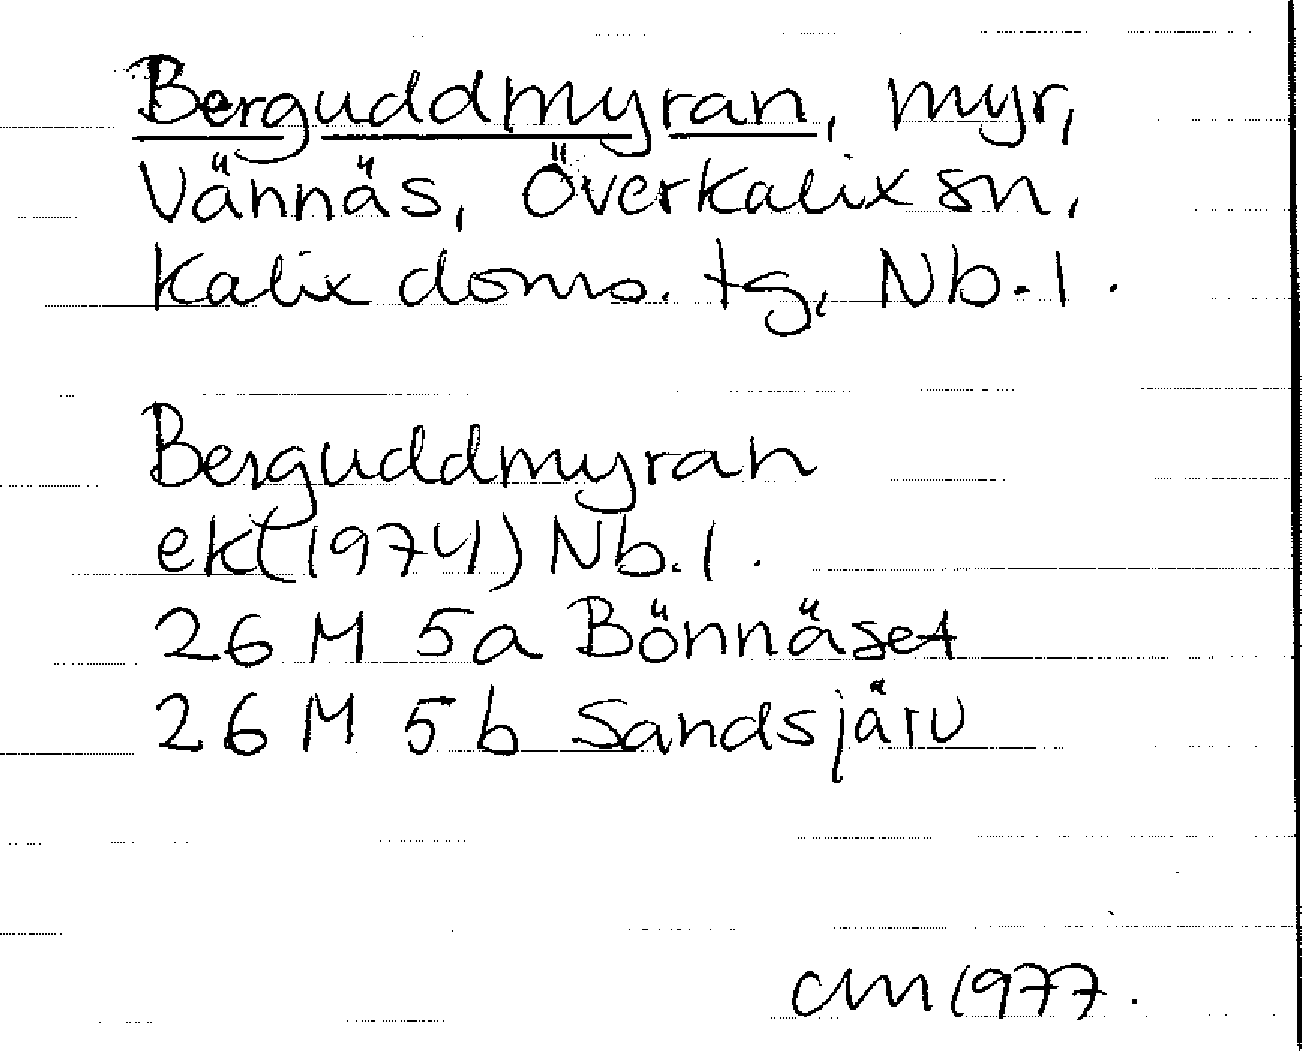 Berguddmyran, myr,
Vännäs, Överkalix sn,
Kalix doms. tg, Nb. l.
Berguddmyran
ek (1974) Nb. l.
26 M 5a Bönnäset
26 M 5b Sandsjärv
CM 1977.